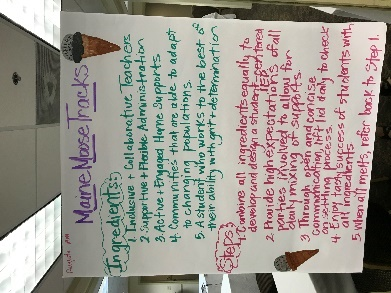 Maine Moose Tracks
Ingredients:
1 Inclusive + Collaborative Teachers
2 Supportive + Flexible Administration
3 Active + Engaged Home Supports
4 Communities that are able to adapt
to changing populations.
5. A student who works to the best of
their ability with grit + determination
Steps:
1. Combine all ingredients equally to
develop and design a student centered
IEP.
2. Provide high expectations of all
parties involved to allow for
daily mixing of supports.
3 Through open and concise
communication, lift lid daily to check
on setting process.
4. Enjoy the success of students with
all ingredients
5 When all melts, refer back to Step 1.